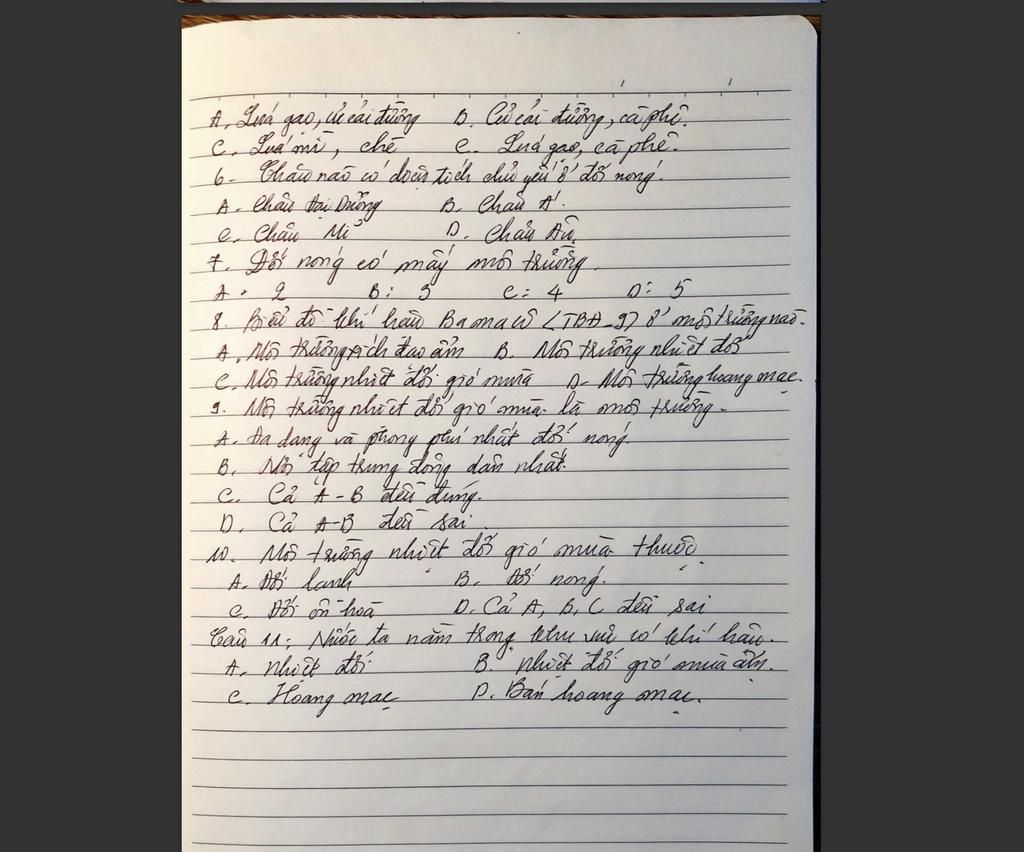 A. Luá gạo, củ cải đường B. Củ cải đường, cà phê.
C. Luá mì, chè C. Luá gạo, cà phê.
6- Châu naò có diện tích chủ yếu ở đới nóng.
A. Châu Đại Dương B. Châu Á.
C. Châu Mĩ D. Châu Âu.
7. Đới nóng có mấy môi trường.
A. 2 B: 3 C: 4 D: 5
8. Biểu đồ khí hâụ Bamacô (TBĐ_9) ở môi trường naò.
A. Môi trường xích đạo ẩm B. Môi trường nhiệt đới
C. Môi trường nhiệt đới gió mùa D. Môi trường hoang mạc.
9. Môi trường nhiệt đới gió mùa là môi trường.
A. Đa dạng và phong phú nhất đới nóng.
B. Nơi tập trung đông dân nhất.
C. Cả A-B đều đúng.
D. Cả A-B đều sai.
10. Môi trường nhiệt đới gió mùa thuộc
A. Đới lạnh B. Đới nóng.
C. Đới ôn hoà D. Cả A, B, C đều sai
Câu 11: Nước ta nằm trong khu vực có khí hâụ.
A. nhiệt đới B. nhiệt đới gió mùa ẩm.
C. Hoang mạc D. Bán hoang mạc.